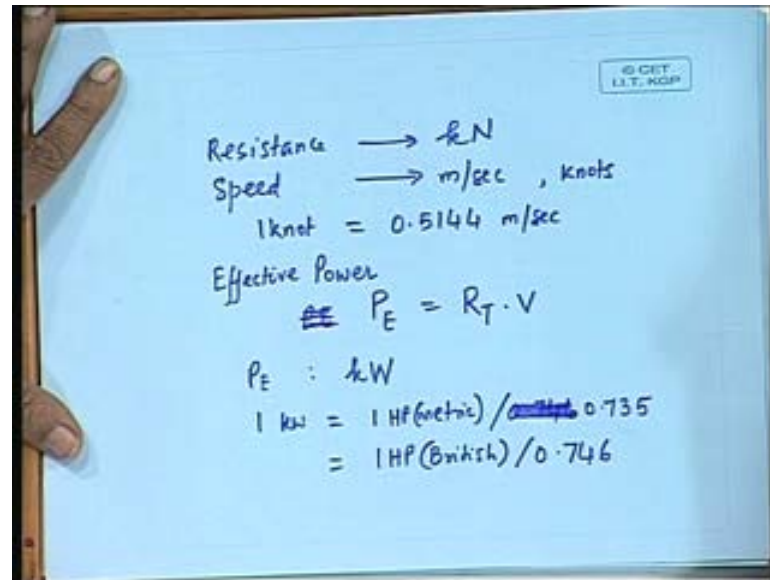 © CET
I.I.T. KGP
Resistance → kN
Speed → m/sec , knots
1 knot = 0.5144 m/sec
Effective Power
P_E = R_T . V
P_E : kW
1 kw = 1 HP (metric) / 0.735
= 1 HP (British) / 0.746